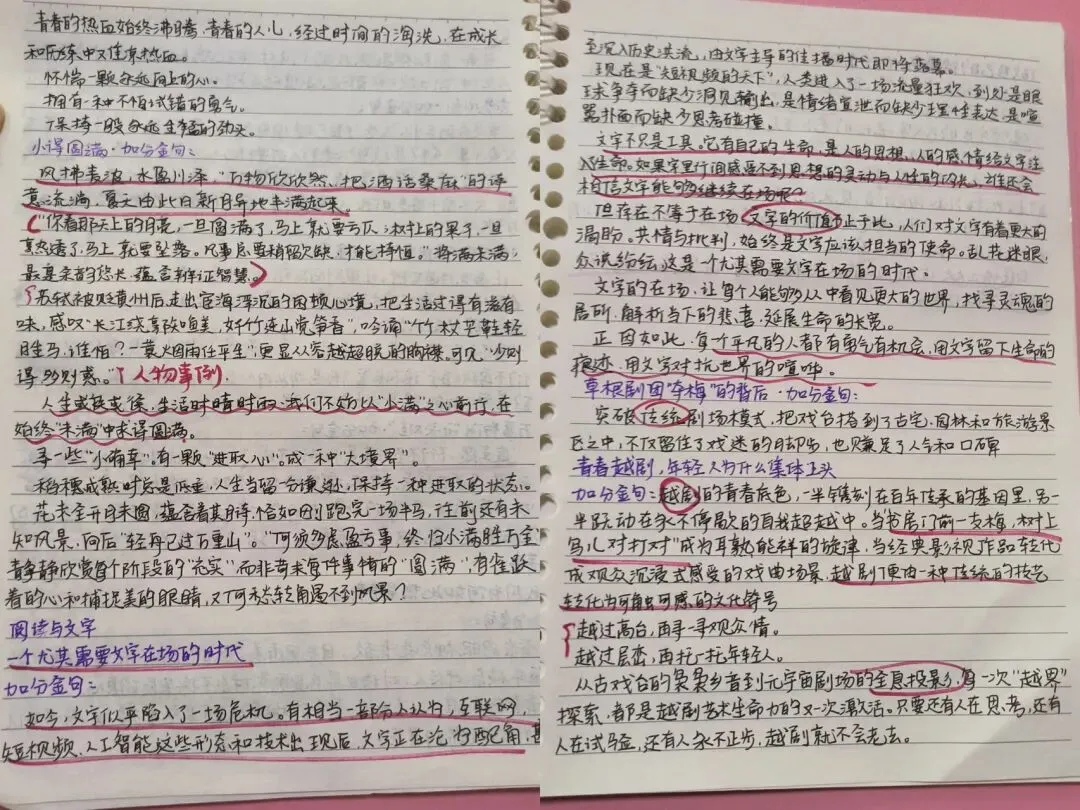 青春的热血始终沸腾，青春的人儿，经过时间的淘洗，在成长
和历练中又往来热血。
怀惴一颗永远向上的心。
拥有一种不惧试错的勇气。
保持一股永远生猛的劲头。
小得圆满·加分金句：
风拂青波，水盈川泽，"万物欣欣然、把酒话桑麻"的诗
意流淌，夏天由此日新月异地丰满起来
"你看那天上的月亮，一旦圆满了，马上就要亏仄；树上的果子，一旦
真熟透了，马上就要坠落。凡事总要稍留欠缺，才能持恒。"将满未满，
最真条的悠长，蕴含辩证智慧。
苏轼被贬黄州后走出宦海浮沉的困顿心境，把生活过得有滋有
味，感叹"长江绕郭知鱼美，好竹连山觉笋香"，吟诵"竹杖芒鞋轻
胜马，谁怕？一蓑烟雨任平生"，更显从容超脱的胸襟。可见，"少则
得，多则惑。" 人物事例.
人生或疾或徐，生活时晴时雨，我们不妨以"小满"之心前行，在
始终"未满"中求得圆满。
寻一些"小确幸"。有一颗"进取心"。成一种"大境界"。
稻穗成熟时总是低垂，人生当留一份谦逊，保持一种进取的状态。
花未全开月未圆，蕴含着其期待，恰如因刚跑完一场半马，往前还有未
知风景，向后"轻舟已过万重山"。"何须多虑盈亏事，终归小满胜万全"
静静欣赏每个阶段的"充实"，而非苛求每件事情的"圆满"，有雀跃
着的心和捕捉美的眼睛，又何愁转角遇不到风景？
阅读与文字
一个尤其需要文字在场的时代
加分金句：
如今，文字似乎陷入了一场危机。有相当一部分人认为，互联网
短视频、人工智能这些形态和技术出现后，文字正在沦为配角，甚
至沉入历史洪流，由文字主导的传播时代即将落幕。
现在是"短视频的天下"，人类进入了一场流量狂欢，到处是眼
球争夺而缺少洞见输出，是情绪宣泄而缺少理性表达，是喧
嚣扑面而缺少思考碰撞。
文字不只是工具。它有自己的生命，是人的思想、人的感情给文字注
入生命。如果字里行间感受不到思想的灵动与人性的闪光，谁还会
相信文字能够继续在场呢？
但存在不等于在场，文字的价值不止于此，人们对文字有着更大的
渴盼。共情与批判，始终是文字应该担当的使命。乱花迷眼，
众说纷纭，这是一个尤其需要文字在场的时代。
文字的在场，让每个人能够从中看见更大的世界，找寻灵魂的
居所，解析当下的悲喜，延展生命的长宽。
正因如此，每个平凡的人都有勇气有机会，用文字留下生命的
痕迹，用文字对抗世界的喧哗。
草根剧团"夺梅"的背后·加分金句：
突破传统剧场模式，把戏台搭到了古宅、园林和旅游景
区之中，不仅留住了戏迷的脚步，也赚足了人气和口碑
青春越剧，年轻人为什么集体上头
加分金句：越剧的青春底色，一半镌刻在百年传承的基因里，另一
半跃动在永不停歇的自我超越中。当"书房门前一支梅，树上
鸟儿对打对"成为耳熟能祥的旋律，当经典影视作品转化
成观众沉浸式感受的戏曲场景，越剧便由一种传统的技艺
转化为可触可感的文化符号
越过高台，再寻一寻观众情。
越过层峦，再托一托年轻人。
从古戏台的袅袅乡音到元宇宙剧场的全息投影，每一次"越界"
探索，都是越剧艺术生命力的又一次激活。只要还有人在思考，还有
人在试验，还有人永不止步，越剧就不会老去。